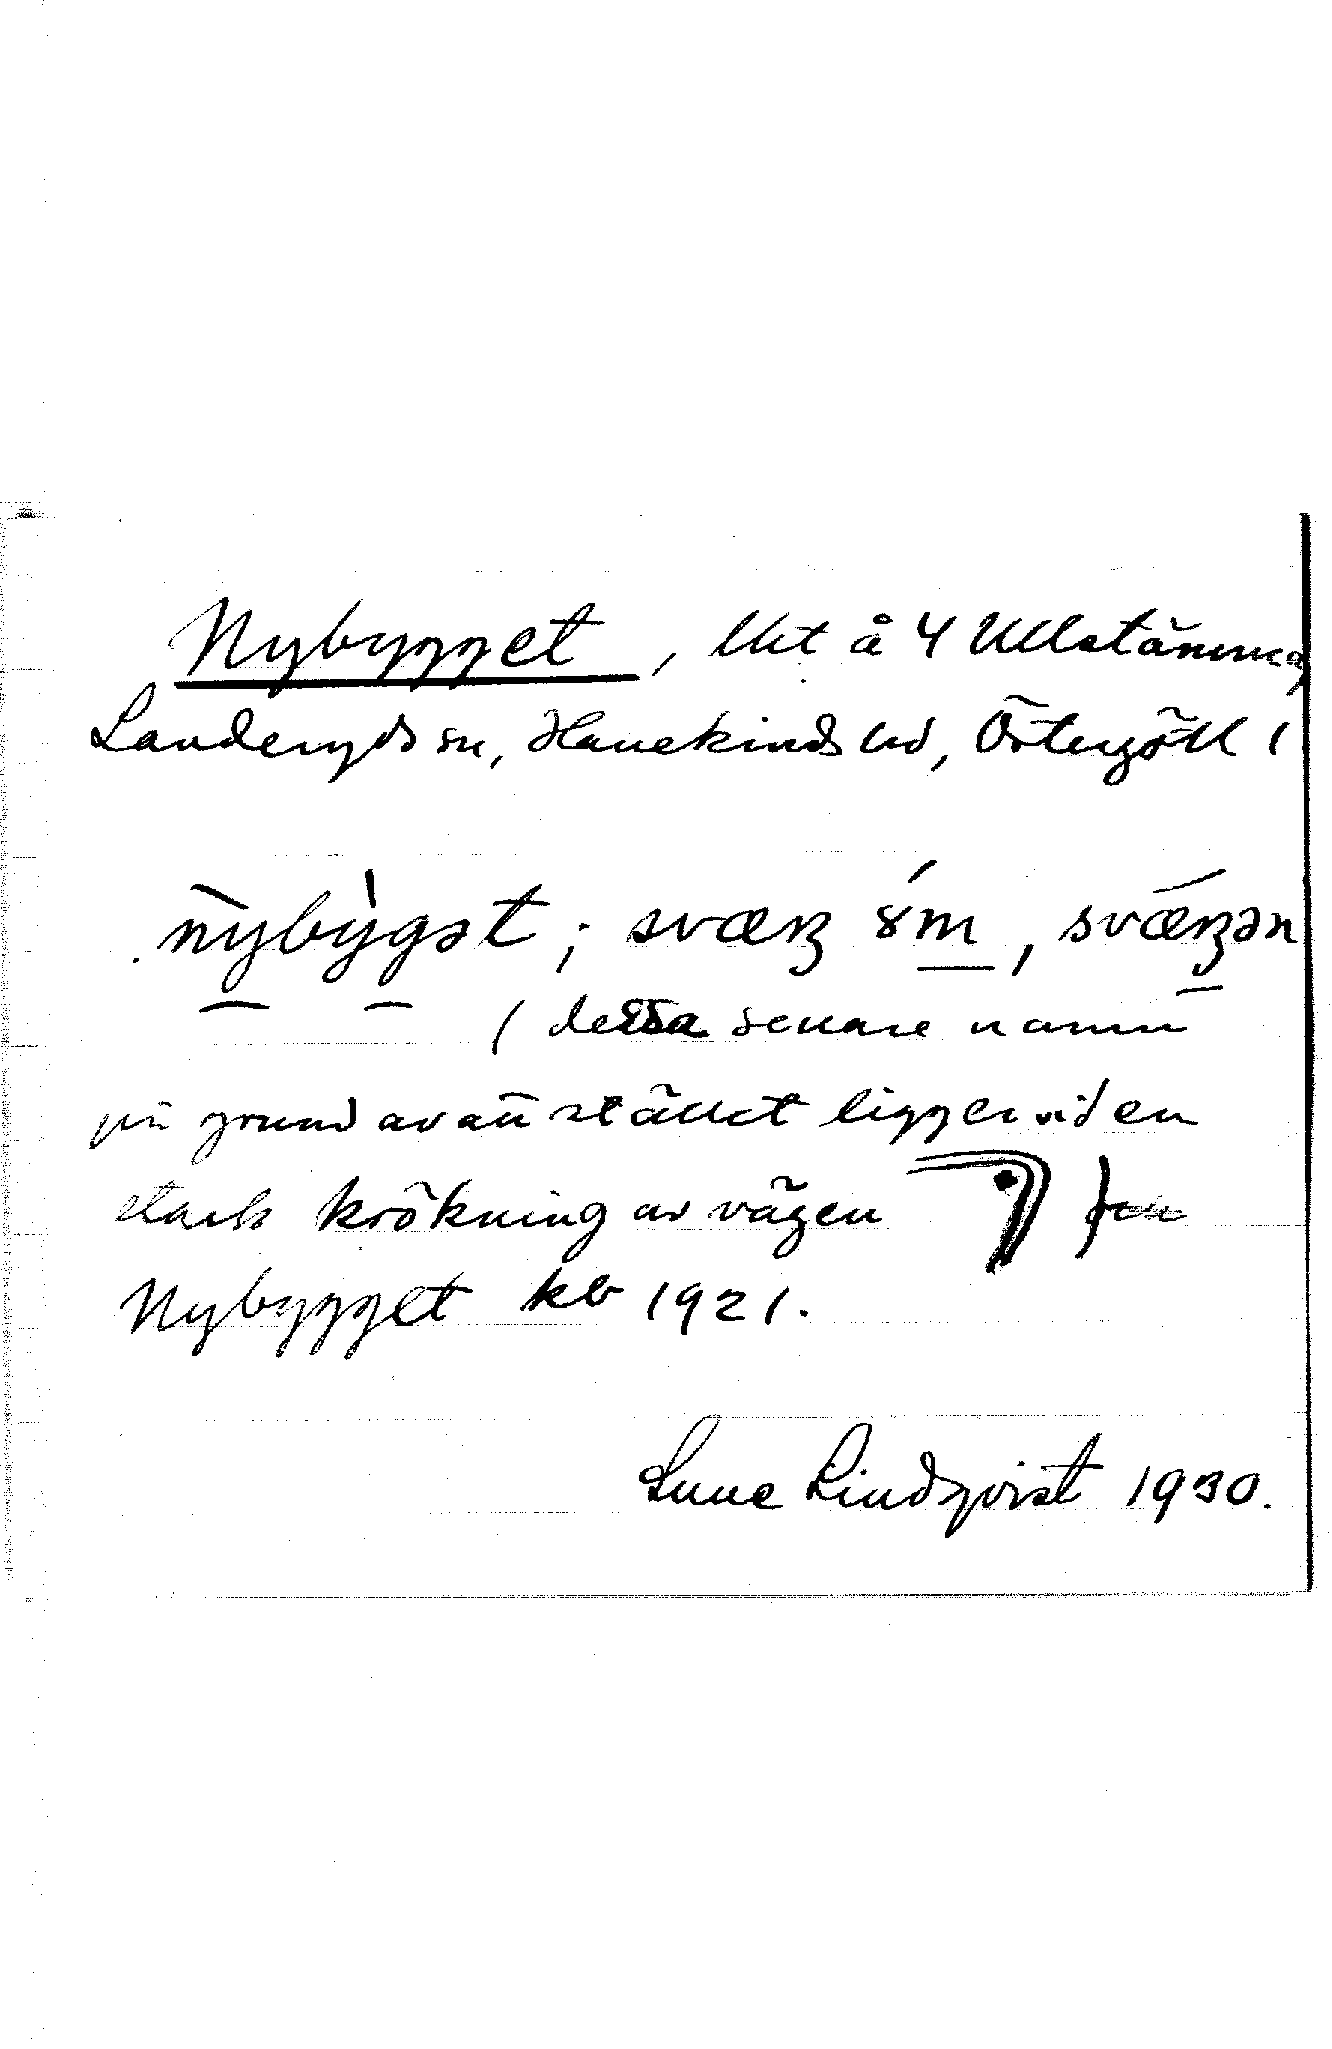 Nybygget, lht å 4 Ullstämma,
Landeryds sn, Hanekinds hd, Östergötl l
nybygət; sværʒ óm, sværʒən
( dessa senare namn
på grund av att stället ligger vid en
stark krökning av vägen )
Nybygget kb 1921.
Sune Lindqvist 1930.